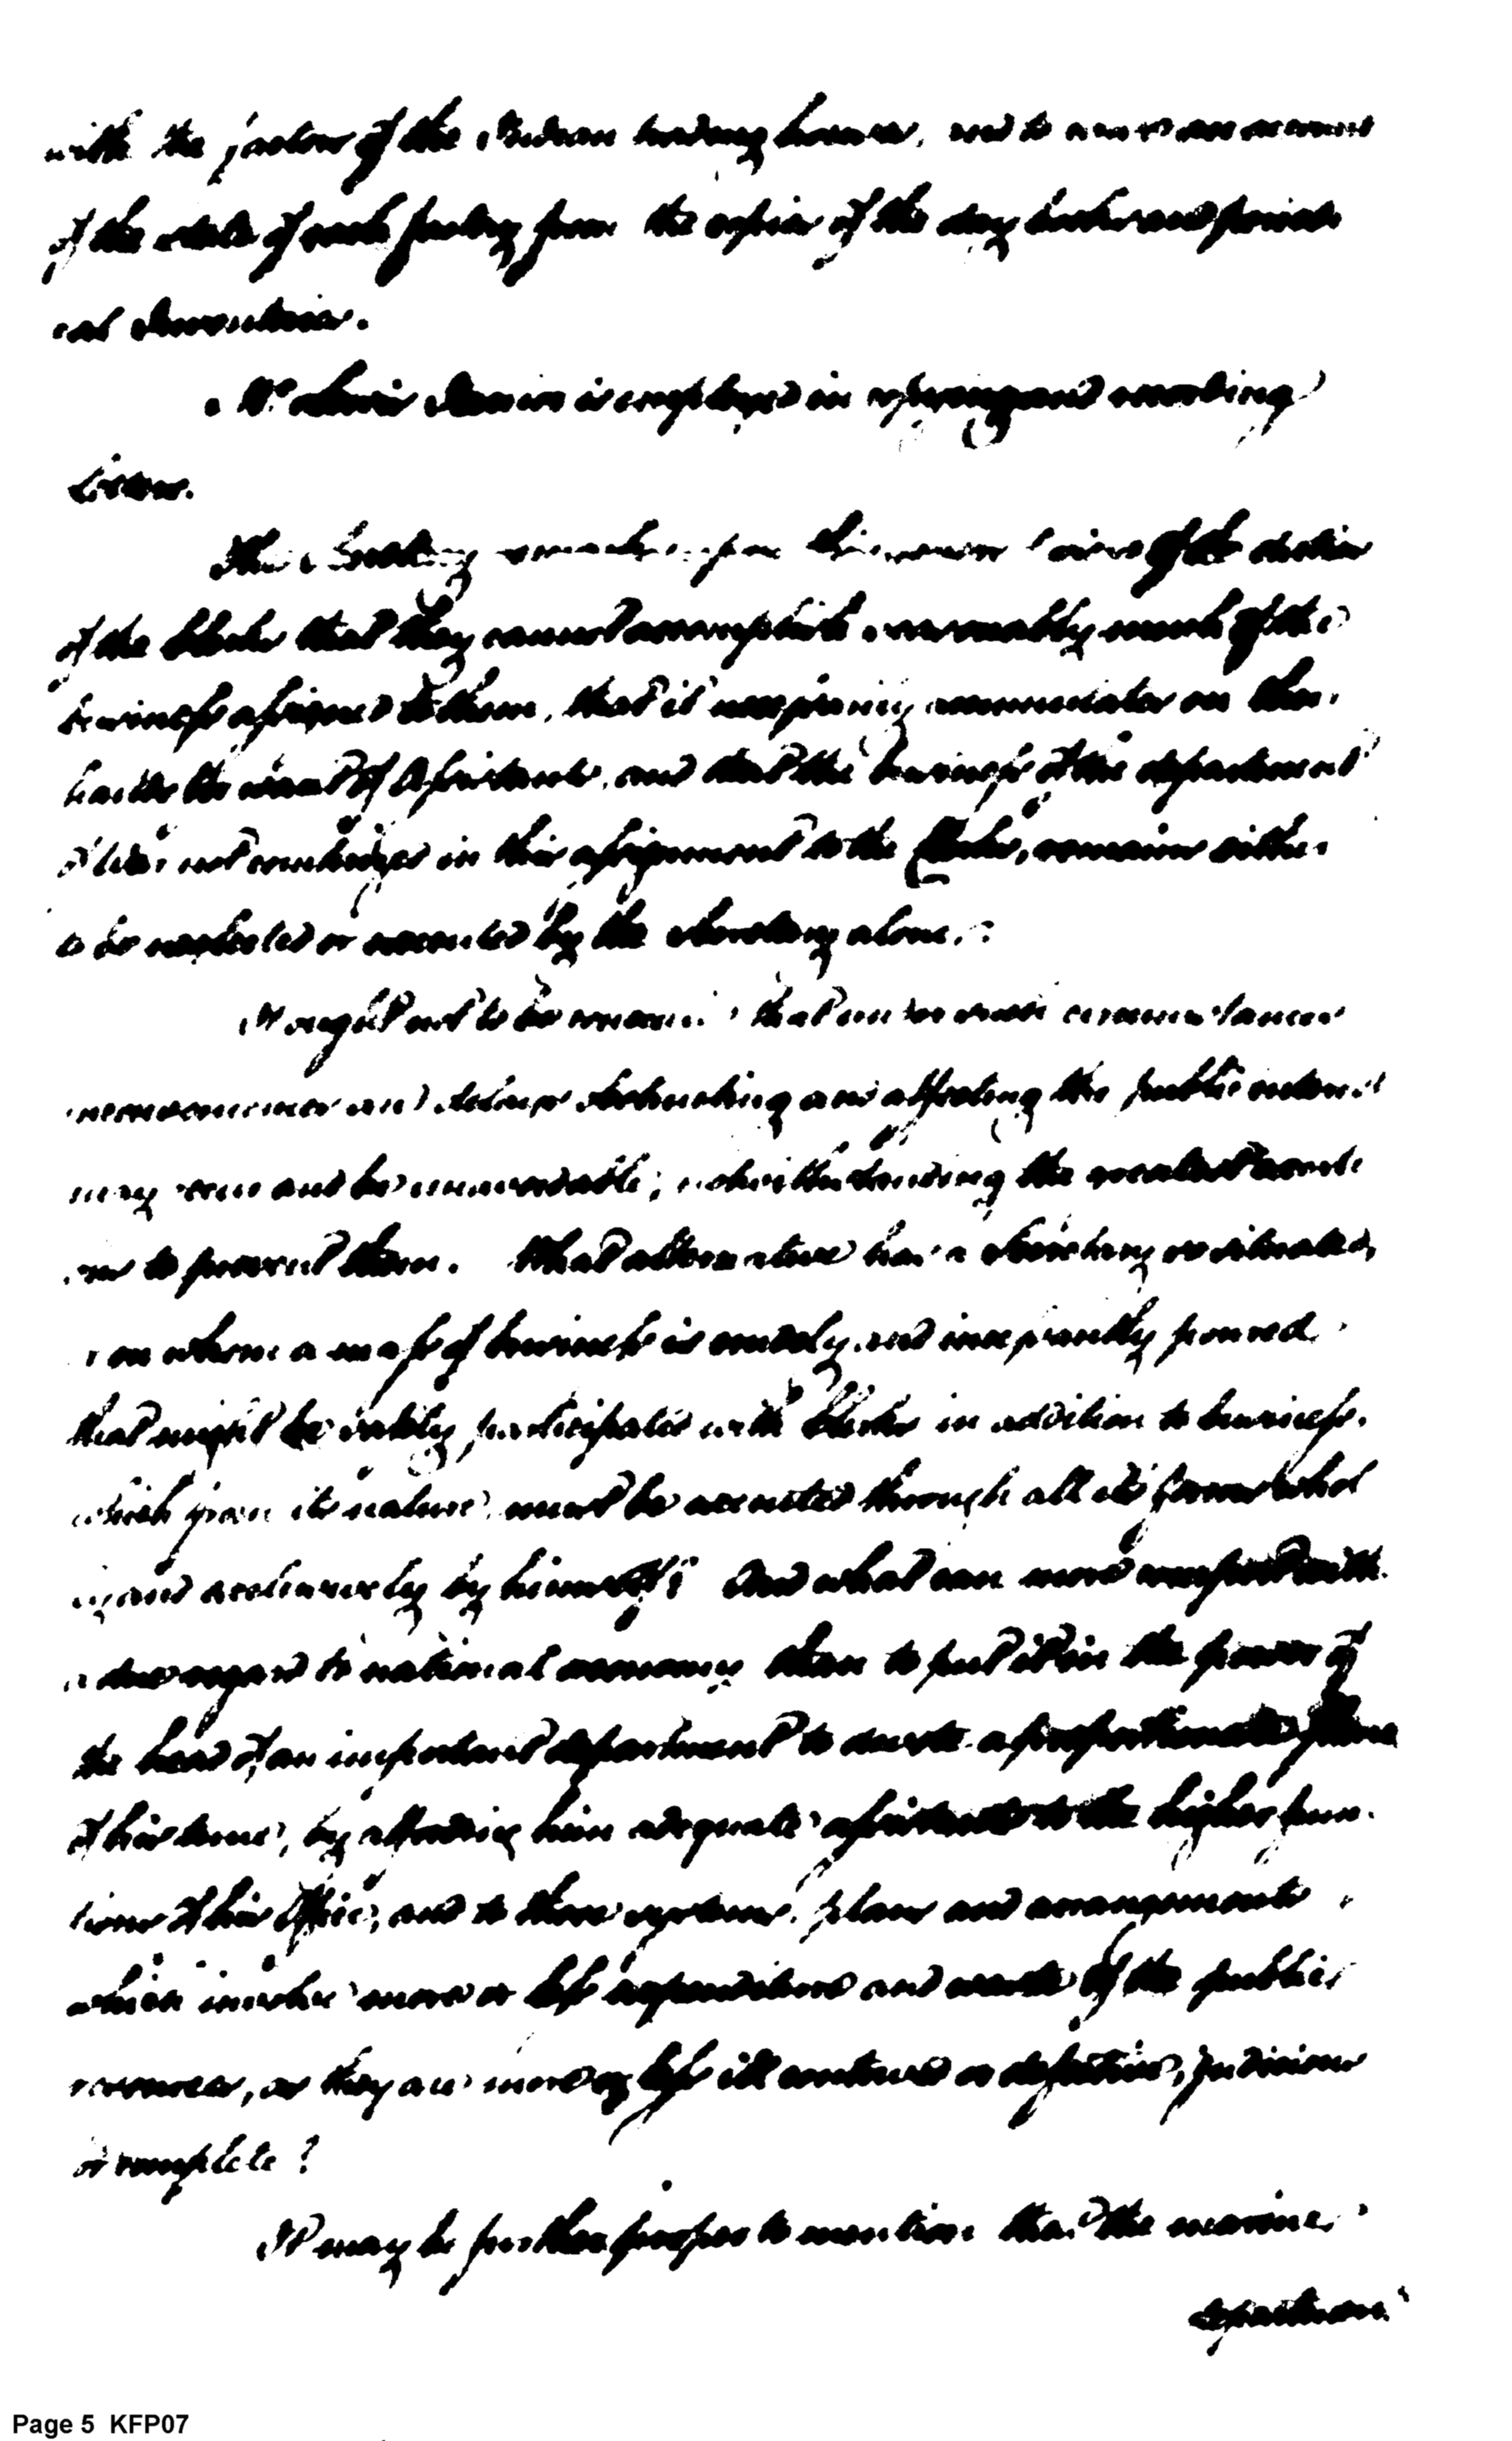 with the factor of the Indian trading houses, and to an account
of the state of each factory from the copies of the day books and period
ical Inventories.
Mr. Lewis is employed in copying and recording
letters.
The Secretary upon this view of the duties
of the Clerks that they cannot accomplish seasonably much of the
business assigned to them, that it unceasingly accumulates on their
hands the want of Assistants, and that the business of the department
not in this assignment to the Clerks, remains either
to be neglected or executed by the Secretary alone.
It ought not to be that under such circumstances
inconveniences and delays obstructing and affecting the public interest
may occur and be unavoidable; notwithstanding the greatest
to prevent them. What alternative has a Secretary so situated,
on whom a mass of business is and incessantly poured
that might be participated with Clerks in addition to business,
which from its nature must be executed through all its forms whol
ly and exclusively by himself? And what can more comport with
a due regard to national economy than to put it in the power of
the head of an important department to devote a proportionate share
of his time, by affording him adequate assistants to the higher func
tions of his Office, and to those systems, plans and arrangements
which involve more or less expenditure and waste of the public
resources, as they are more or less ill or defective, judicious
or complete?
It may be further proper to mention that the marine
department
Page 5 KFP07